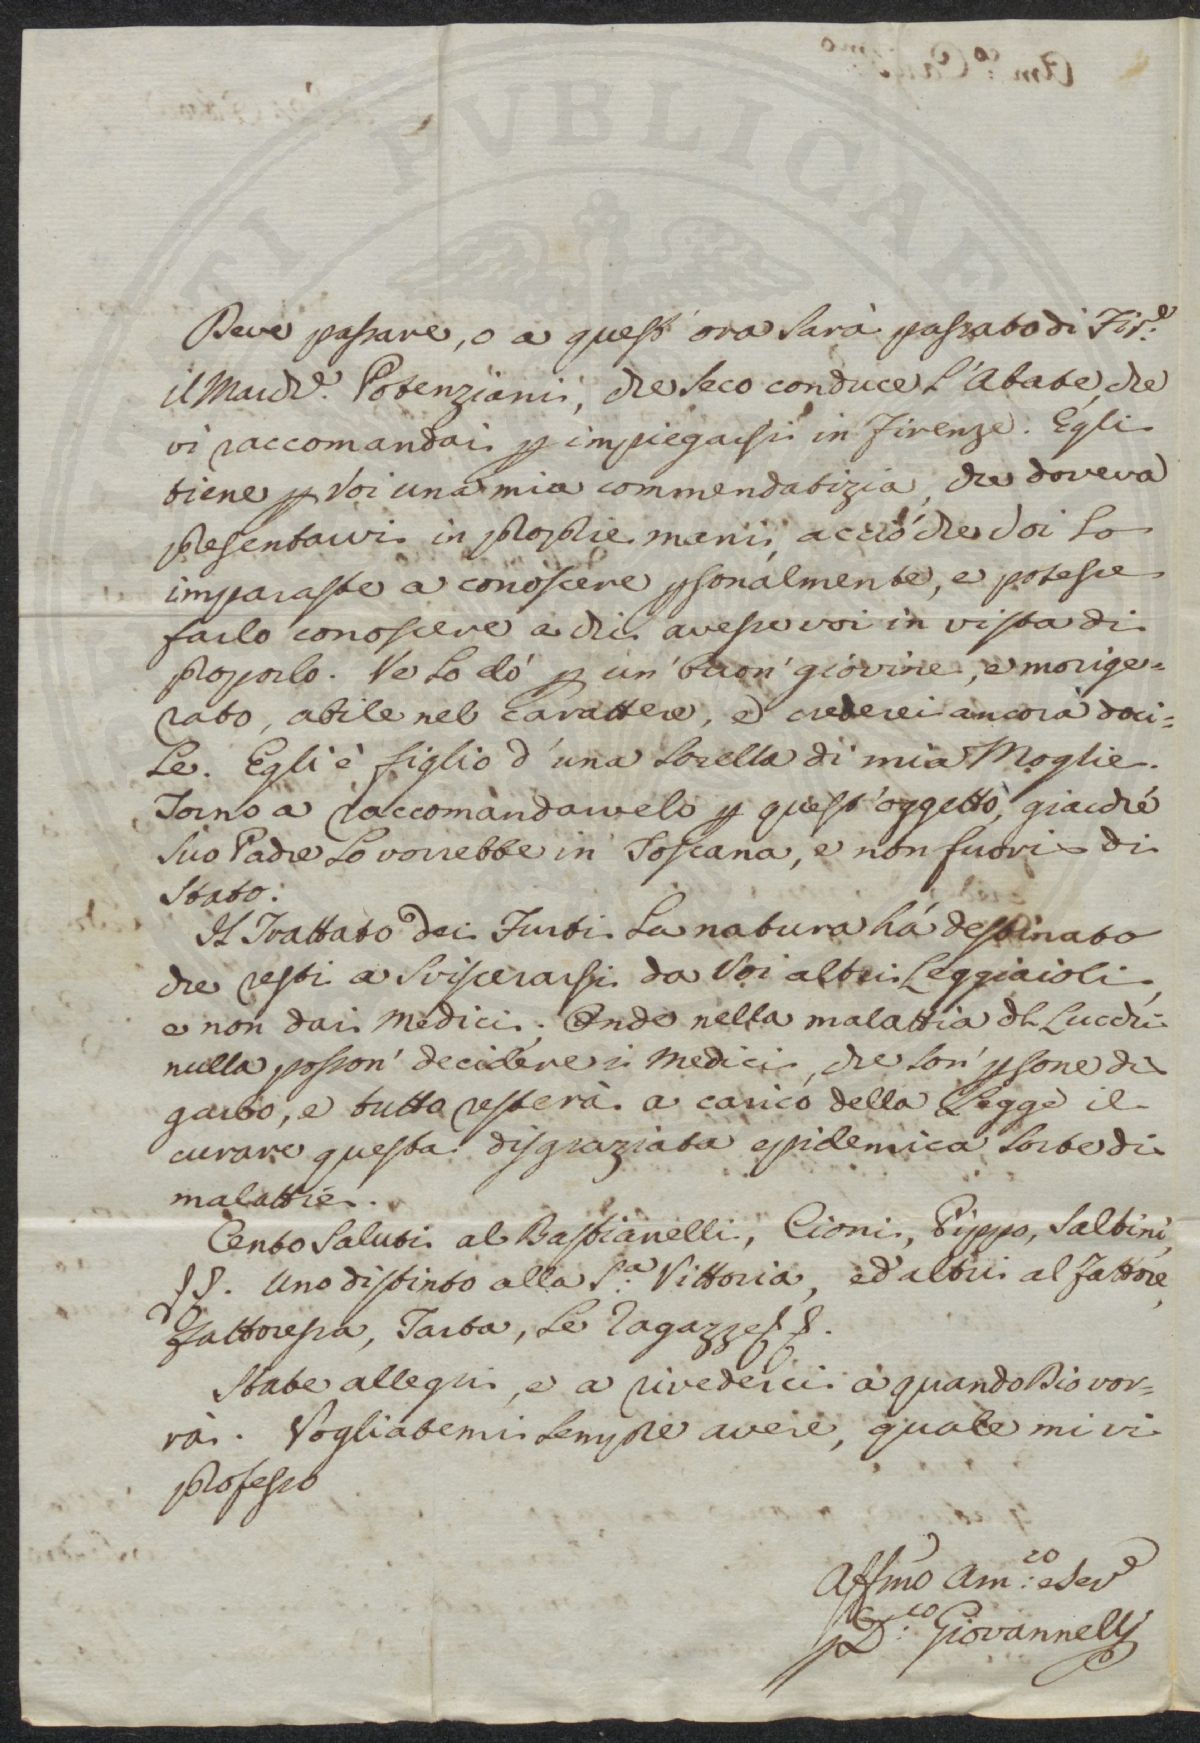 PUBLICAE
Deve passare, o a quest' ora sarà passato di Fir.e
il March.e Potenziani, che seco conduce l'Abate, che
vi raccomandai p impiegarsi in Firenze. Egli
tiene p Voi una mia commendatizia, che doveva
presentarvi in proprie mani, acciò che Voi lo
imparaste a conoscere psonalmente, e poteste
farlo conoscere a chi avesse voi in vista di
proporlo. Ve lo dò p un' buon' giovine, e morige=
rato, abile nel carattere, e crederei ancora doci=
le. Egli è figlio d' una sorella di mia Moglie.
Torno a raccomandarvelo p quest' oggetto, giacchè
suo Padre lo vorrebbe in Toscana, e non fuori di
stato.
Il Trattato dei Furti la natura há destinato
che resti a sviscerarsi da Voi altri Leggiaioli,
e non dai Medici. Onde nella malattia dl Lucchi
nulla posson' decidere i Medici, che son' psone di
garbo, e tutto resterà a carico della Legge il
curare questa disgraziata epidemica sorte di
malattie.
Cento saluti al Bastianelli, Cioni, Pippo, Saltini,
Uno distinto alla S.a Vittoria, ed altri al Fattore,
Fattoressa, Tarta, le Ragazze
State allegri, e a rivederci a quando Dio vor=
rà. Vogliatemi sempre avere, quale mi vi
professo
Affmo Am.co e Ser.e
D.co Giovannelli